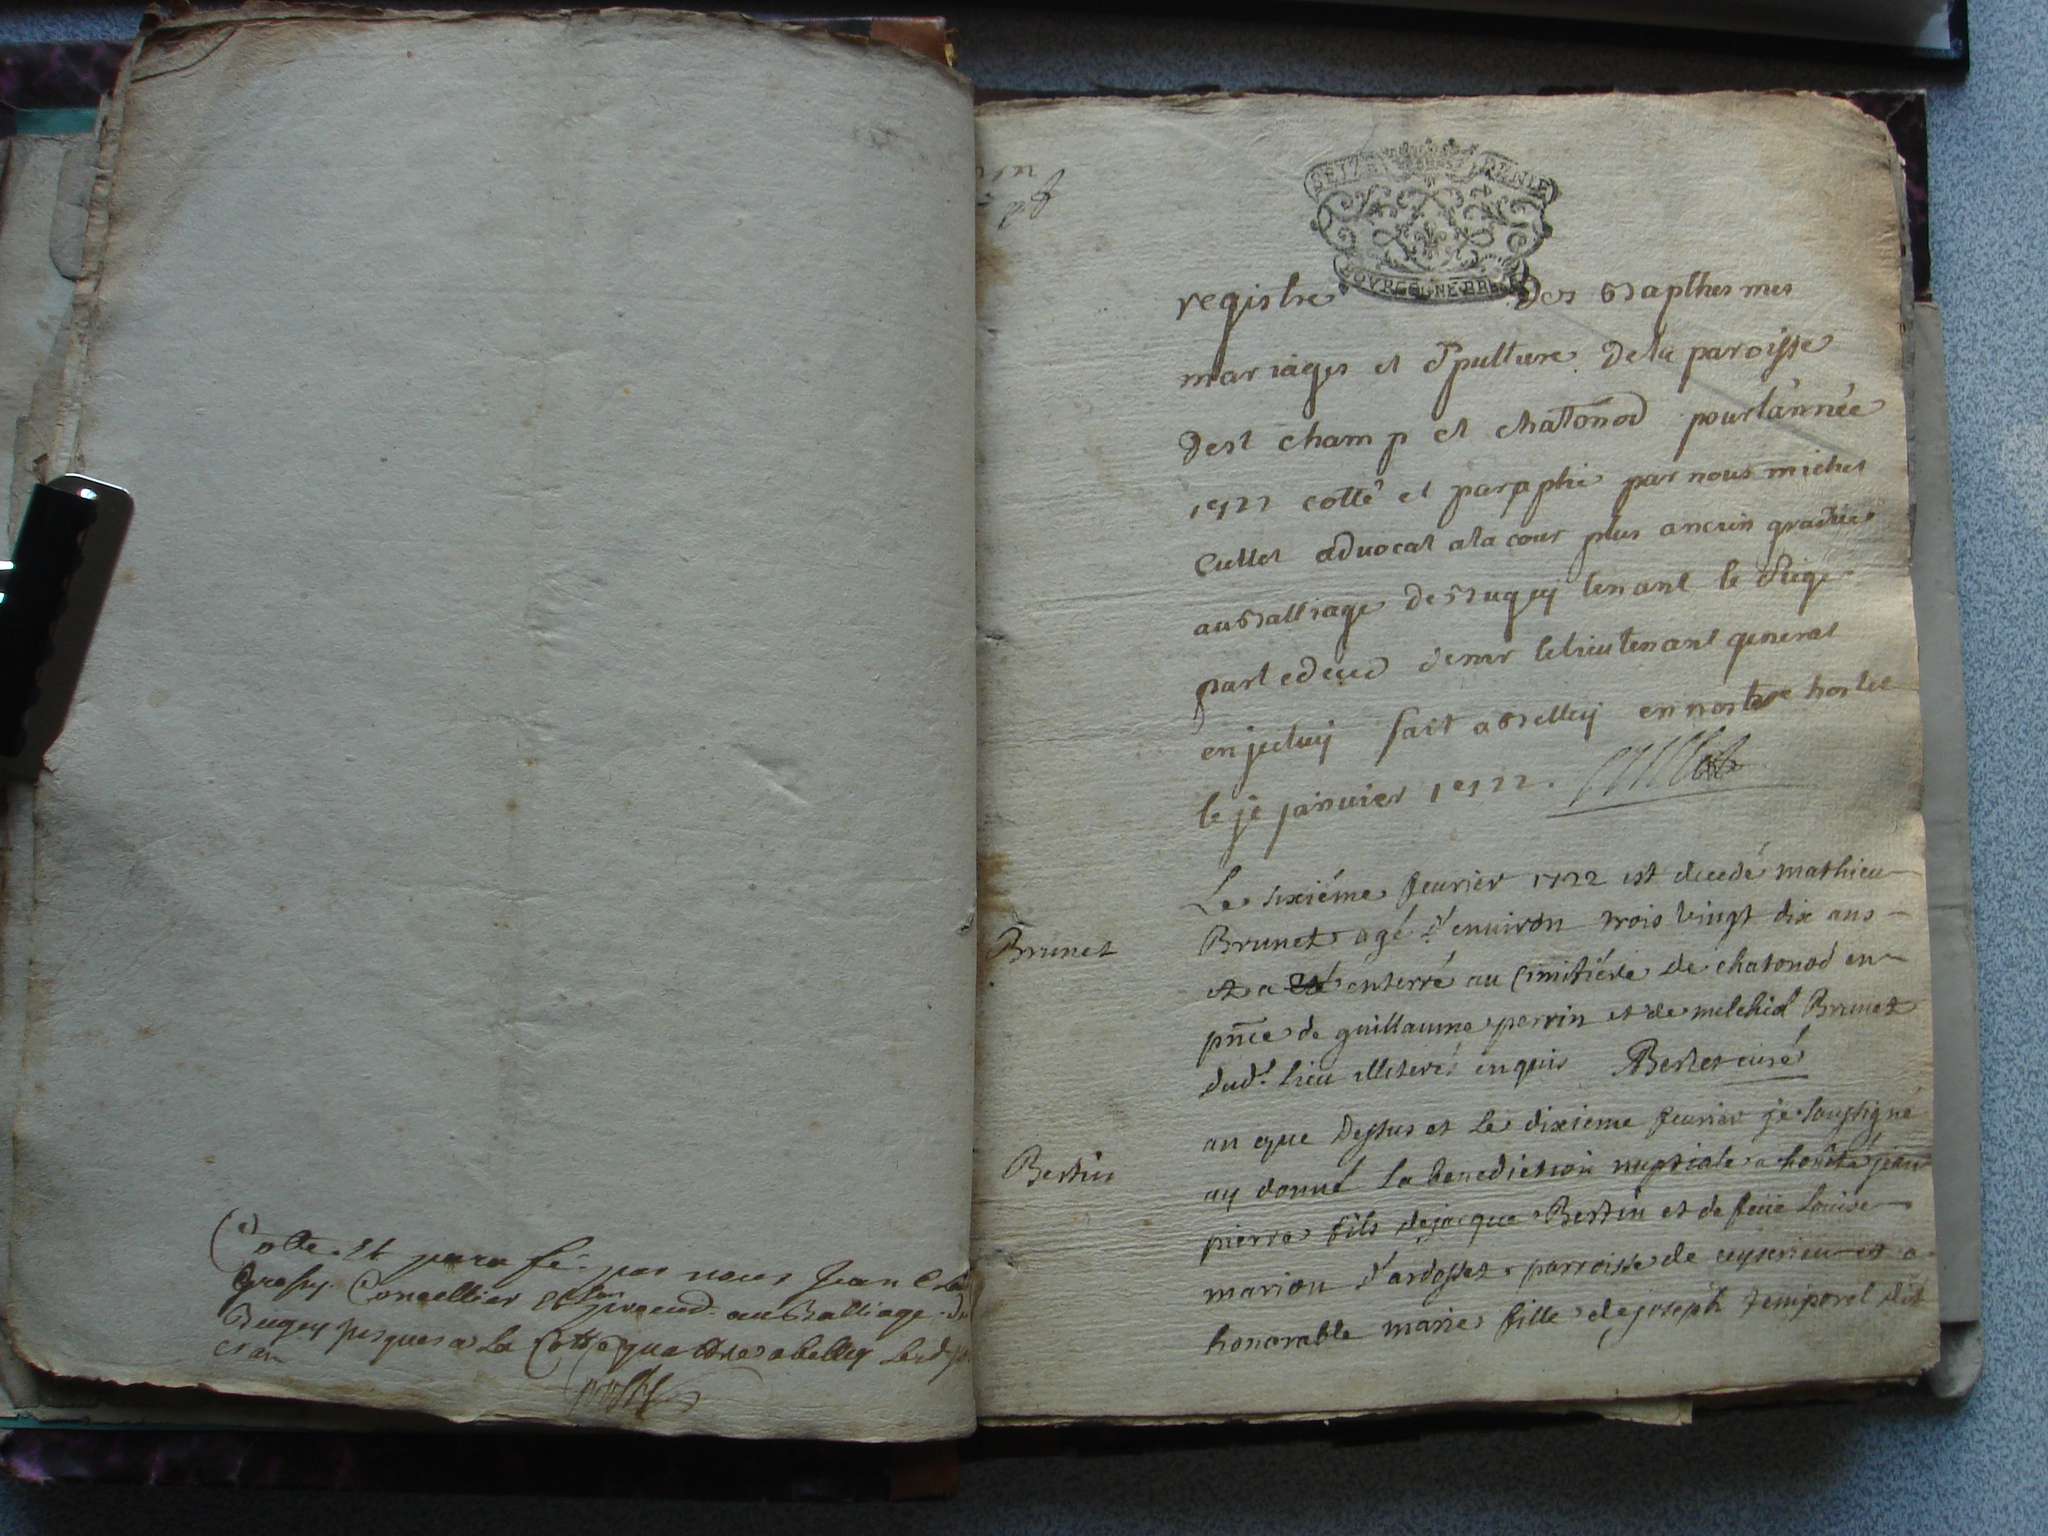 Cotté et parafé par nous Jean
Concellier et au Balliage du
Bugey jusques a la Cotte quattre a belley le
SEIZE DENIE
BOVRGOGNE BRESSE
registre Des Bapthesmes
mariages et Sepulture De la paroisse
Dest champ et chatonod pour lannée
1722 cotté et paraphé par nous michel
Cullet advocat a la cour plus ancien gradué
au Balliage De Bugey tenant le Siege
par le deced de mr le lieutenant general
en jceluy fait a Belley en nostre hostel
le je janvier 1722.
Brunet
Le sixiéme feurier 1722 est decedé mathieu
Brunet agé d'enuiron trois vingt dix ans
et a eté enterré au Cimitiére de chatonod en
pnce de guillaume perrin et de melchiol Brunet
dud. lieu illeterés enquis Bertet curé
Bertin
an que Dessus et le dixieme feurier je soussigné
ay donné la benediction nuptiale a honste jean
pierre fils de jacque Bertin et de feüe Louise
marion d'ardosset parroisse de ceyzerieu et a
honorable marie fille de joseph temporel dit